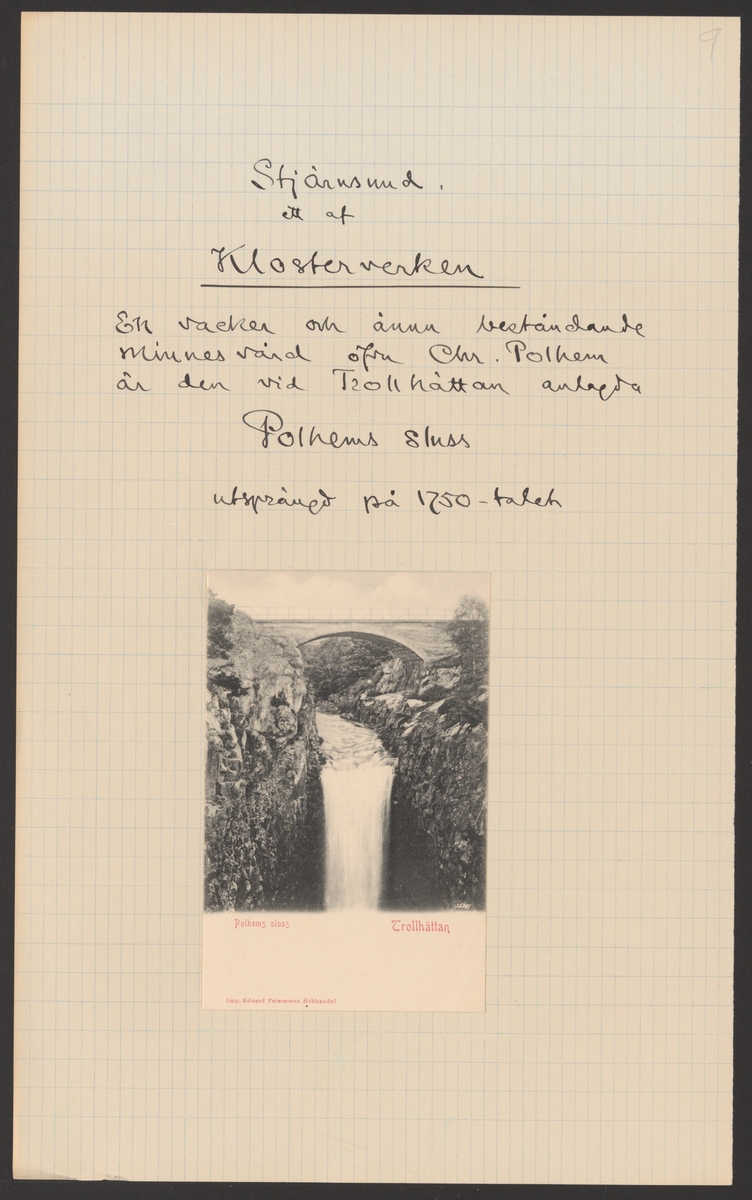 9
Stjärnsund.
ett af
Klosterverken
En vacker och ännu bestående
minnesvård öfver Chr. Polhem
är den vid Trollhättan anlagda
Polhems sluss
utsprängd på 1750-talet
Polhems sluss
Trollhättan
Imp. Eduard Peterssons Bokhandel